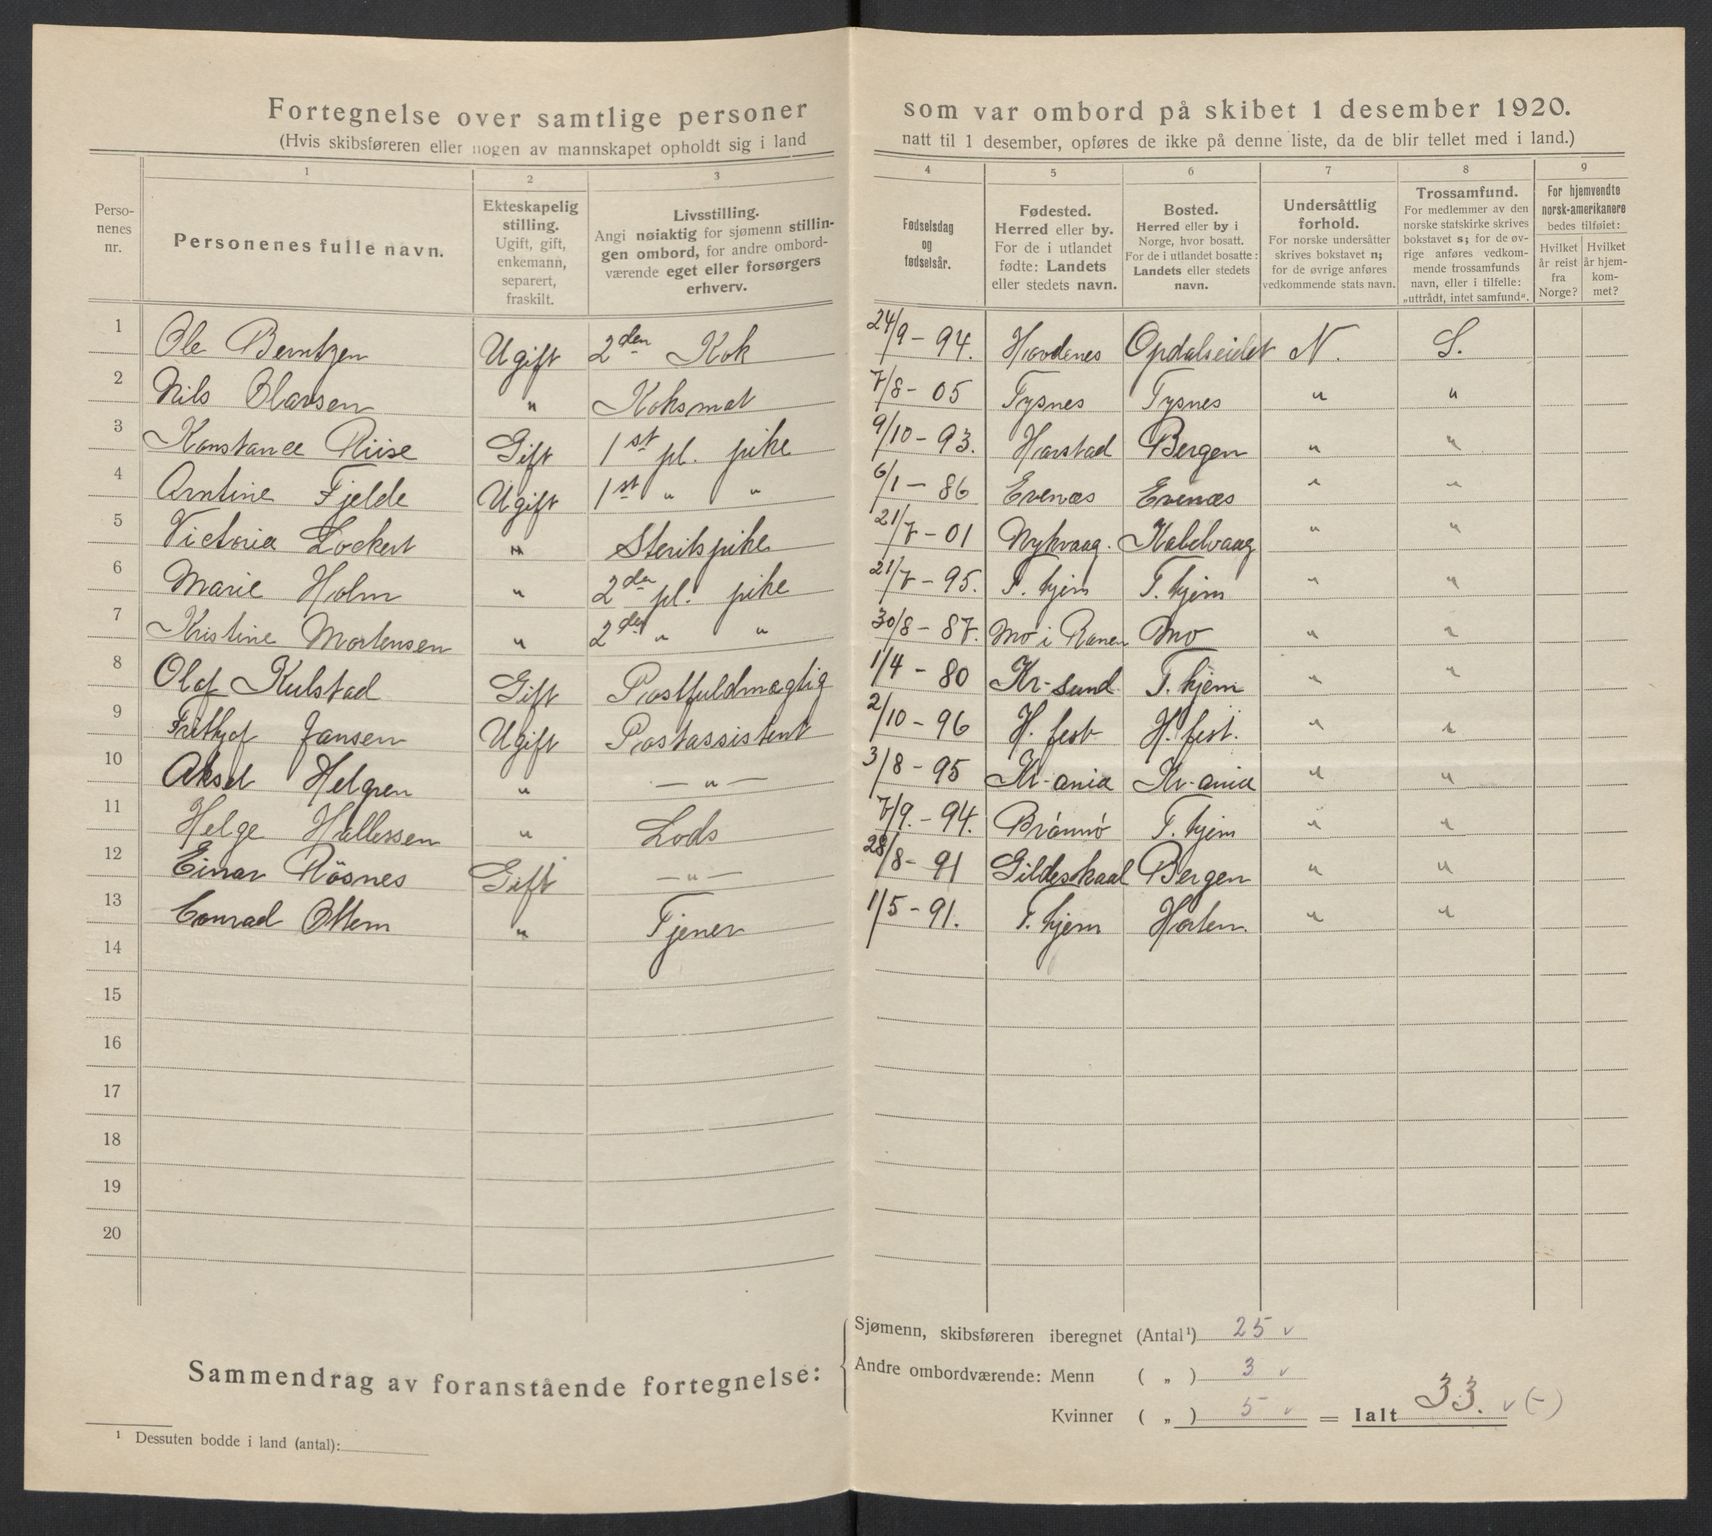 Fortegnelse over samtlige personer som var ombord på skibet 1 desember 1920.
(Hvis skibsføreren eller nogen av mannskapet opholdt sig i land natt til 1 desember, opføres de ikke på denne liste, da de blir tellet med i land.)
1 2 3 4 5 6 7 8 9
Personenes nr.
Personenes fulle navn.
Ekteskapelig stilling. Ugift, gift, enkemann, separert, fraskilt.
Livsstilling. Angi nøiaktig for sjømenn stillingen ombord, for andre ombordværende eget eller forsørgers erhverv.
Fødselsdag og fødselsår.
Fødested. Herred eller by. For de i utlandet fødte: Landets eller stedets navn.
Bosted. Herred eller by i Norge, hvor bosatt. For de i utlandet bosatte: Landets eller stedets navn.
Undersåttlig forhold. For norske undersåtter skrives bokstavet n; for de øvrige anføres vedkommende stats navn.
Trossamfund. For medlemmer av den norske statskirke skrives bokstavet s; for de øvrige anføres vedkommende trossamfunds navn, eller i tilfelle: „uttrådt, intet samfund“.
For hjemvendte norsk-amerikanere bedes tilføiet: Hvilket år reist fra Norge? Hvilket år hjemkommet?
1 Ole Berntzen Ugift 2den Kok 24/9 - 94. Hovdenes Opdalseidet N. S.
2 Nils Olavsen " Koksmat 7/8 - 05 Tysnes Tysnes " "
3 Konstance Riise Gift 1st pl. pike 9/10 - 93. Harstad Bergen " "
4 Arntine Fjelde Ugift 1st " " 6/1 - 86 Evenæs Evenæs " "
5 Victoria Lockert " Steritspike 21/7 - 01 Nykvaag. Kabelvaag " "
6 Marie Holm " 2den pl. pike 21/7 - 95. T. hjem T. hjem " "
7 Kristine Mortensen " 2den " " 30/8 - 87. Mo i Ranen Mo " "
8 Olaf Kulstad Gift Postfuldmægtig 1/4 - 80 Kr-sund T. hjem " "
9 Frithjof Jansen Ugift Postassistent 2/10 - 96 H. fest H. fest. " "
10 Aksel Helgren " — " — 3/8 - 95 Kr-ania Kr-ania " "
11 Helge Hallessen " Lods 7/9. - 94. Brönnö T. hjem " "
12 Einar Rösnes Gift — " — 28/8 - 91 Gildeskaal Bergen " "
13 Conrad Ottem " Tjener 1/5 - 91. T. hjem Horten " "
14
15
16
17
18
19
20
Sammendrag av foranstående fortegnelse:
Sjømenn, skibsføreren iberegnet (Antal¹) 25 v
Andre ombordværende: Menn ( „ ) 3 v
Kvinner ( „ ) 5 v = Ialt 33. v (-)
¹ Dessuten bodde i land (antal):